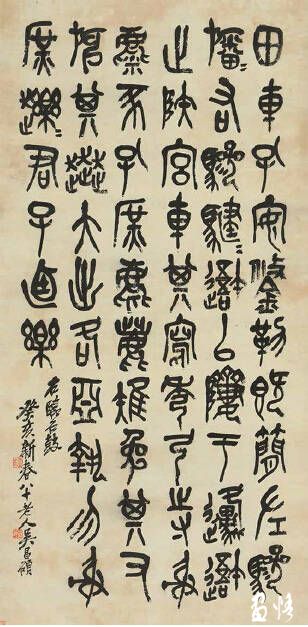 田車孔安鋚勒既簡左驂
旛〻右驂騝〻避以隮于邍避
止陜宮車其寫秀弓寺射
麋豕孔庶麀鹿雉兔其又
旃其大出各亞執勿射
庶趯〻君子逌樂
石鼓
癸亥新春八十老人吳昌碩